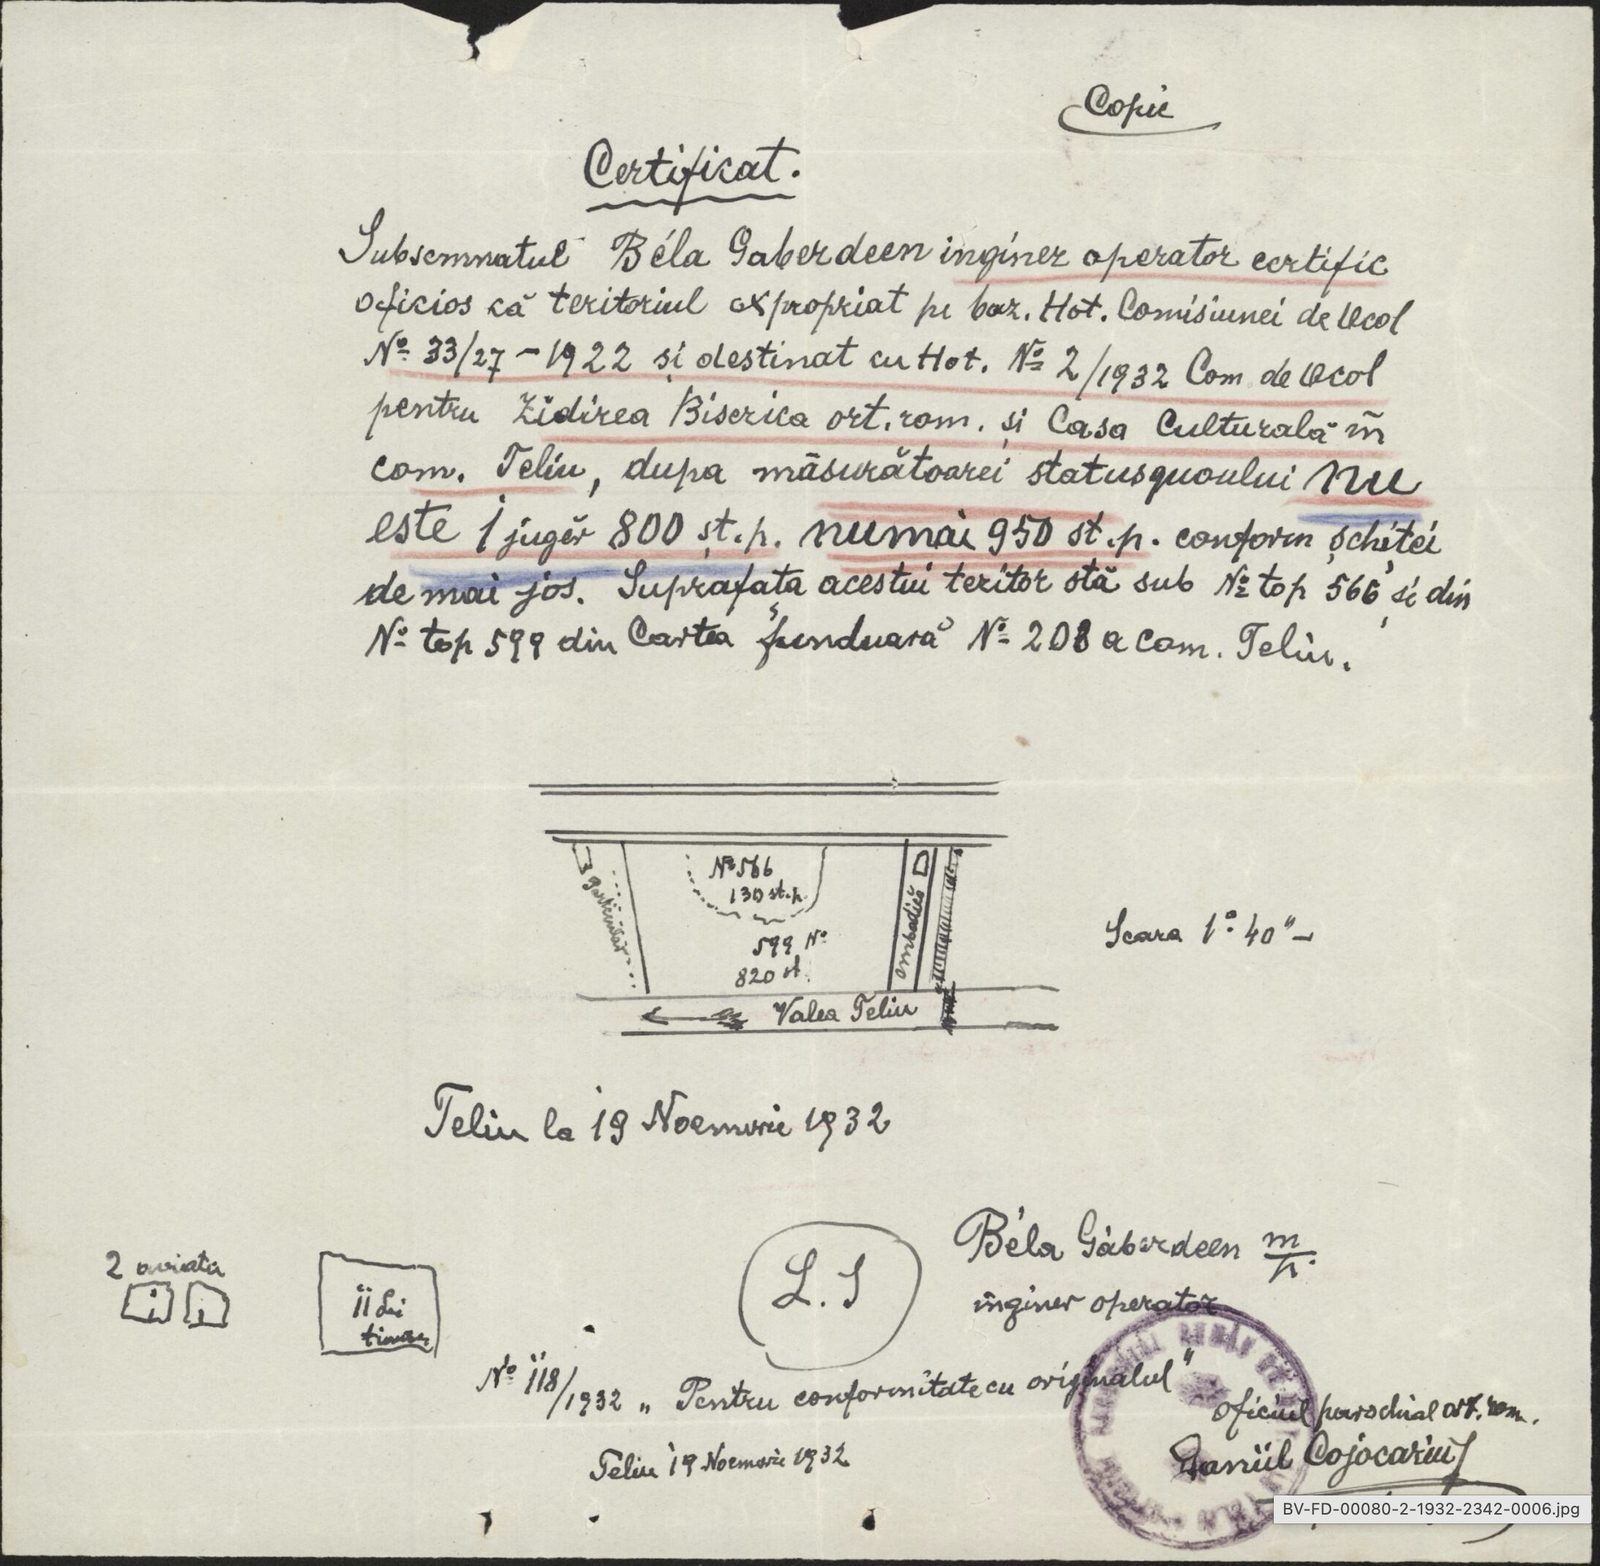 Copie
Certificat.
Subsemnatul Béla Gaberdeen inginer operator certific
oficios că teritoriul expropriat pe baz. Hot. Comisiunei de Ocol
No 33/27 - 1922 și destinat cu Hot. No 2/1932 Com de Ocol
pentru Zidirea Biserica ort. rom. și Casa Culturală în
com. Teliu, dupa măsurătoarei statusquoului nu
este 1 jugĕr 800 st. p. numai 950 st. p. conform schiței
de mai jos. Suprafața acestui teritor stă sub No top 566 și din
No top 599 din Cartea funduară No 208 a com. Teliu.
No 566
130 st. p.
particular
599 No
820 st.
ombadiĕ
Valea Teliu
Scara 1" 40" -
Teliu la 19 Noemvrie 1932
Béla Gáberdeen m/p.
inginer operator
L. S
2
11 Lei
No 118/1932 „Pentru conformitate cu originalul"
Teliu 19 Noemvrie 1932
Oficiul parochial ort. rom.
Daniil Cojocariu
BV-FD-00080-2-1932-2342-0006.jpg